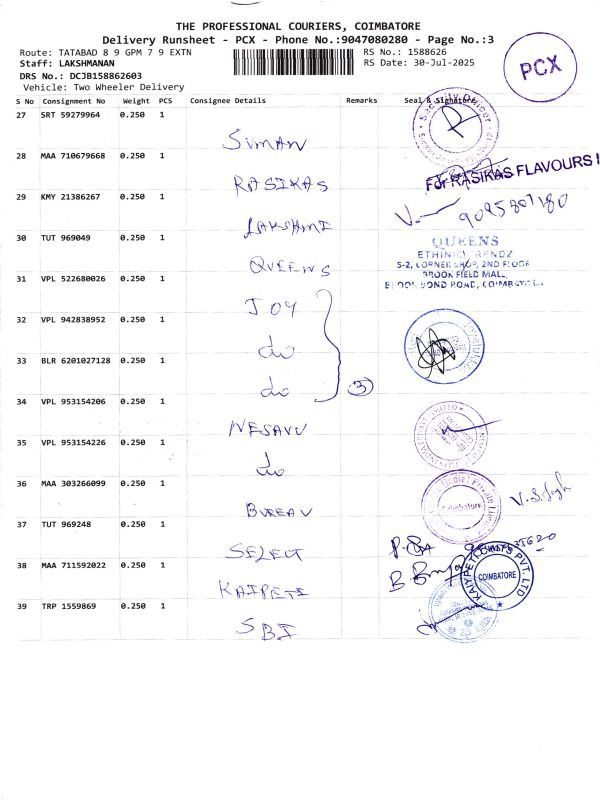 THE PROFESSIONAL COURIERS, COIMBATORE
Delivery Runsheet - PCX - Phone No.:9047080280 - Page No.:3
Route: TATABAD 8 9 GPM 7 9 EXTN
RS No.: 1588626
Staff: LAKSHMANAN
RS Date: 30-Jul-2025
DRS No.: DCJB158862603
Vehicle: Two Wheeler Delivery
PCX
S No Consignment No Weight PCS Consignee Details Remarks Seal & Signature
27 SRT 59279964 0.250 1 SUMAN
28 MAA 710679668 0.250 1 RASIKAS
For RASIKAS FLAVOURS
29 KMY 21386267 0.250 1 LAKSHMI
30 TUT 969049 0.250 1 QUEENS
QUEENS
ETHINIC RENDZ
S-2, CORNER SHOP, 2ND FLOOR
BROOK FIELD MALL,
31 VPL 522680026 0.250 1 JOY
32 VPL 942838952 0.250 1 do
33 BLR 6201027128 0.250 1 do
3
34 VPL 953154206 0.250 1 NESAVU
35 VPL 953154226 0.250 1 do
36 MAA 303266099 0.250 1 BUREAU
Coimbatore
37 TUT 969248 0.250 1 SELECT
38 MAA 711592022 0.250 1 KAIPETI
COIMBATORE
39 TRP 1559869 0.250 1 SBI